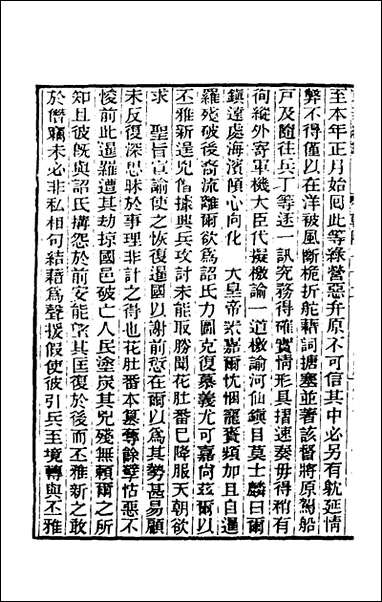 至本年正月始回此等綠營惡弁原不可信其中必另有躭延情
弊不得僅以在洋被風斷桅折舵藉詞搪塞並著該督將原駕船
戸及隨往兵丁等逐一訊究務得確實情形具摺速奏毋得稍有
徇縱外寄軍機大臣代擬檄諭一道檄諭河仙鎭目莫士麟曰爾
鎭遠處海濱傾心向化　大皇帝深嘉爾忱悃寵賚頻加且自暹
羅殘破後裔流離爾欲爲詔氏力圖克復慕義尤可嘉尚茲爾以
丕雅新逞兇僭據興兵攻討未能取勝聞花肚番已降服天朝欲
求　聖旨宣諭使之恢復暹國以謝前愆在爾以爲其勢甚易顧
未反復深思昧於事理非計之得也花肚番本簒奪餘孽怙惡不
悛前此暹羅遭其劫掠國邑破亡人民塗炭其兇殘無賴爾之所
知且彼旣與詔氏搆怨於前安能望其匡復於後而丕雅新之敢
於僭竊未必非私相句結藉爲聲援假使彼引兵至境轉與丕雅